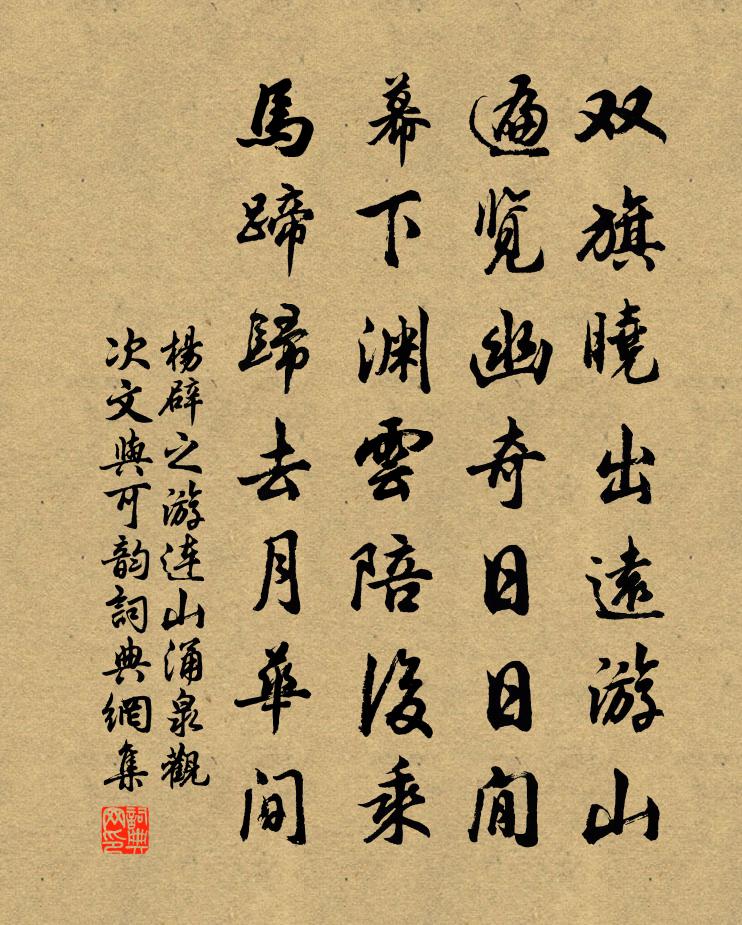 双旗曉出遠游山
遍览幽奇日日闲
幕下渊雲陪後乘
馬蹄歸去月華间
楊辟之游连山涌泉觀
次文與可韵詞典網集
詞典网印